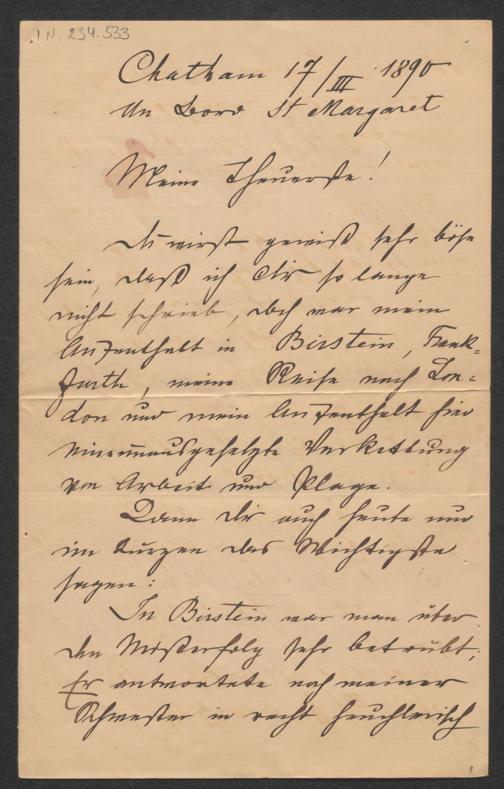 I.N. 234.533
Chatham 17/III 1890
An Bord St Margaret
Meine Theuerste!
Du wirst gewiß sehr böse
sein, daß ich Dir so lange
nicht schrieb, doch war mein
Aufenthalt in Birstein, Frank-
furth, meine Reise nach Lon-
don und mein Aufenthalt hier
eine unausgesetzte Verkettung
von Arbeit und Plage.
Kann Dir auch heute nur
im Kurzen das Wichtigste
sagen:
In Birstein war man über
den Misserfolg sehr betrübt;
Er antwortete noch meiner
Schwester in recht heuchlerisch